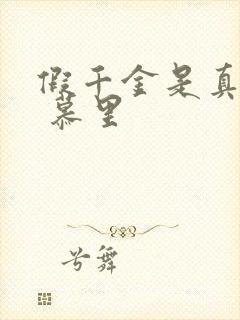 假千金是真
慕里
兮舞